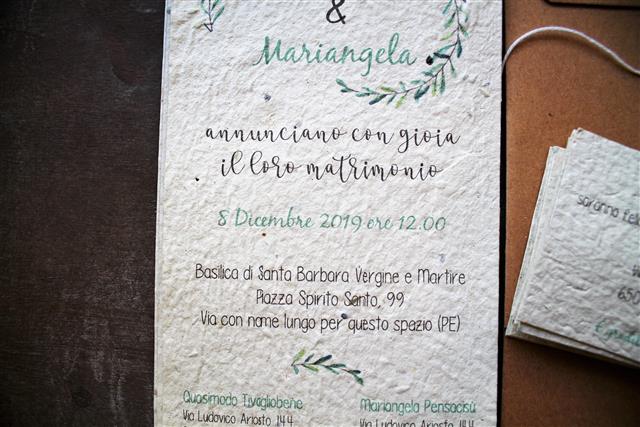 &
Mariangela
annunciano con gioia
il loro matrimonio
8 Dicembre 2019 ore 12.00
Basilica di Santa Barbara Vergine e Martire
Piazza Spirito Santo, 99
Via con nome lungo per questo spazio (PE)
Quasimodo Tivogliobene
Via Ludovico Ariosto 144
Mariangela Pensacisù
Via Ludovico Ariosto 144
saranno